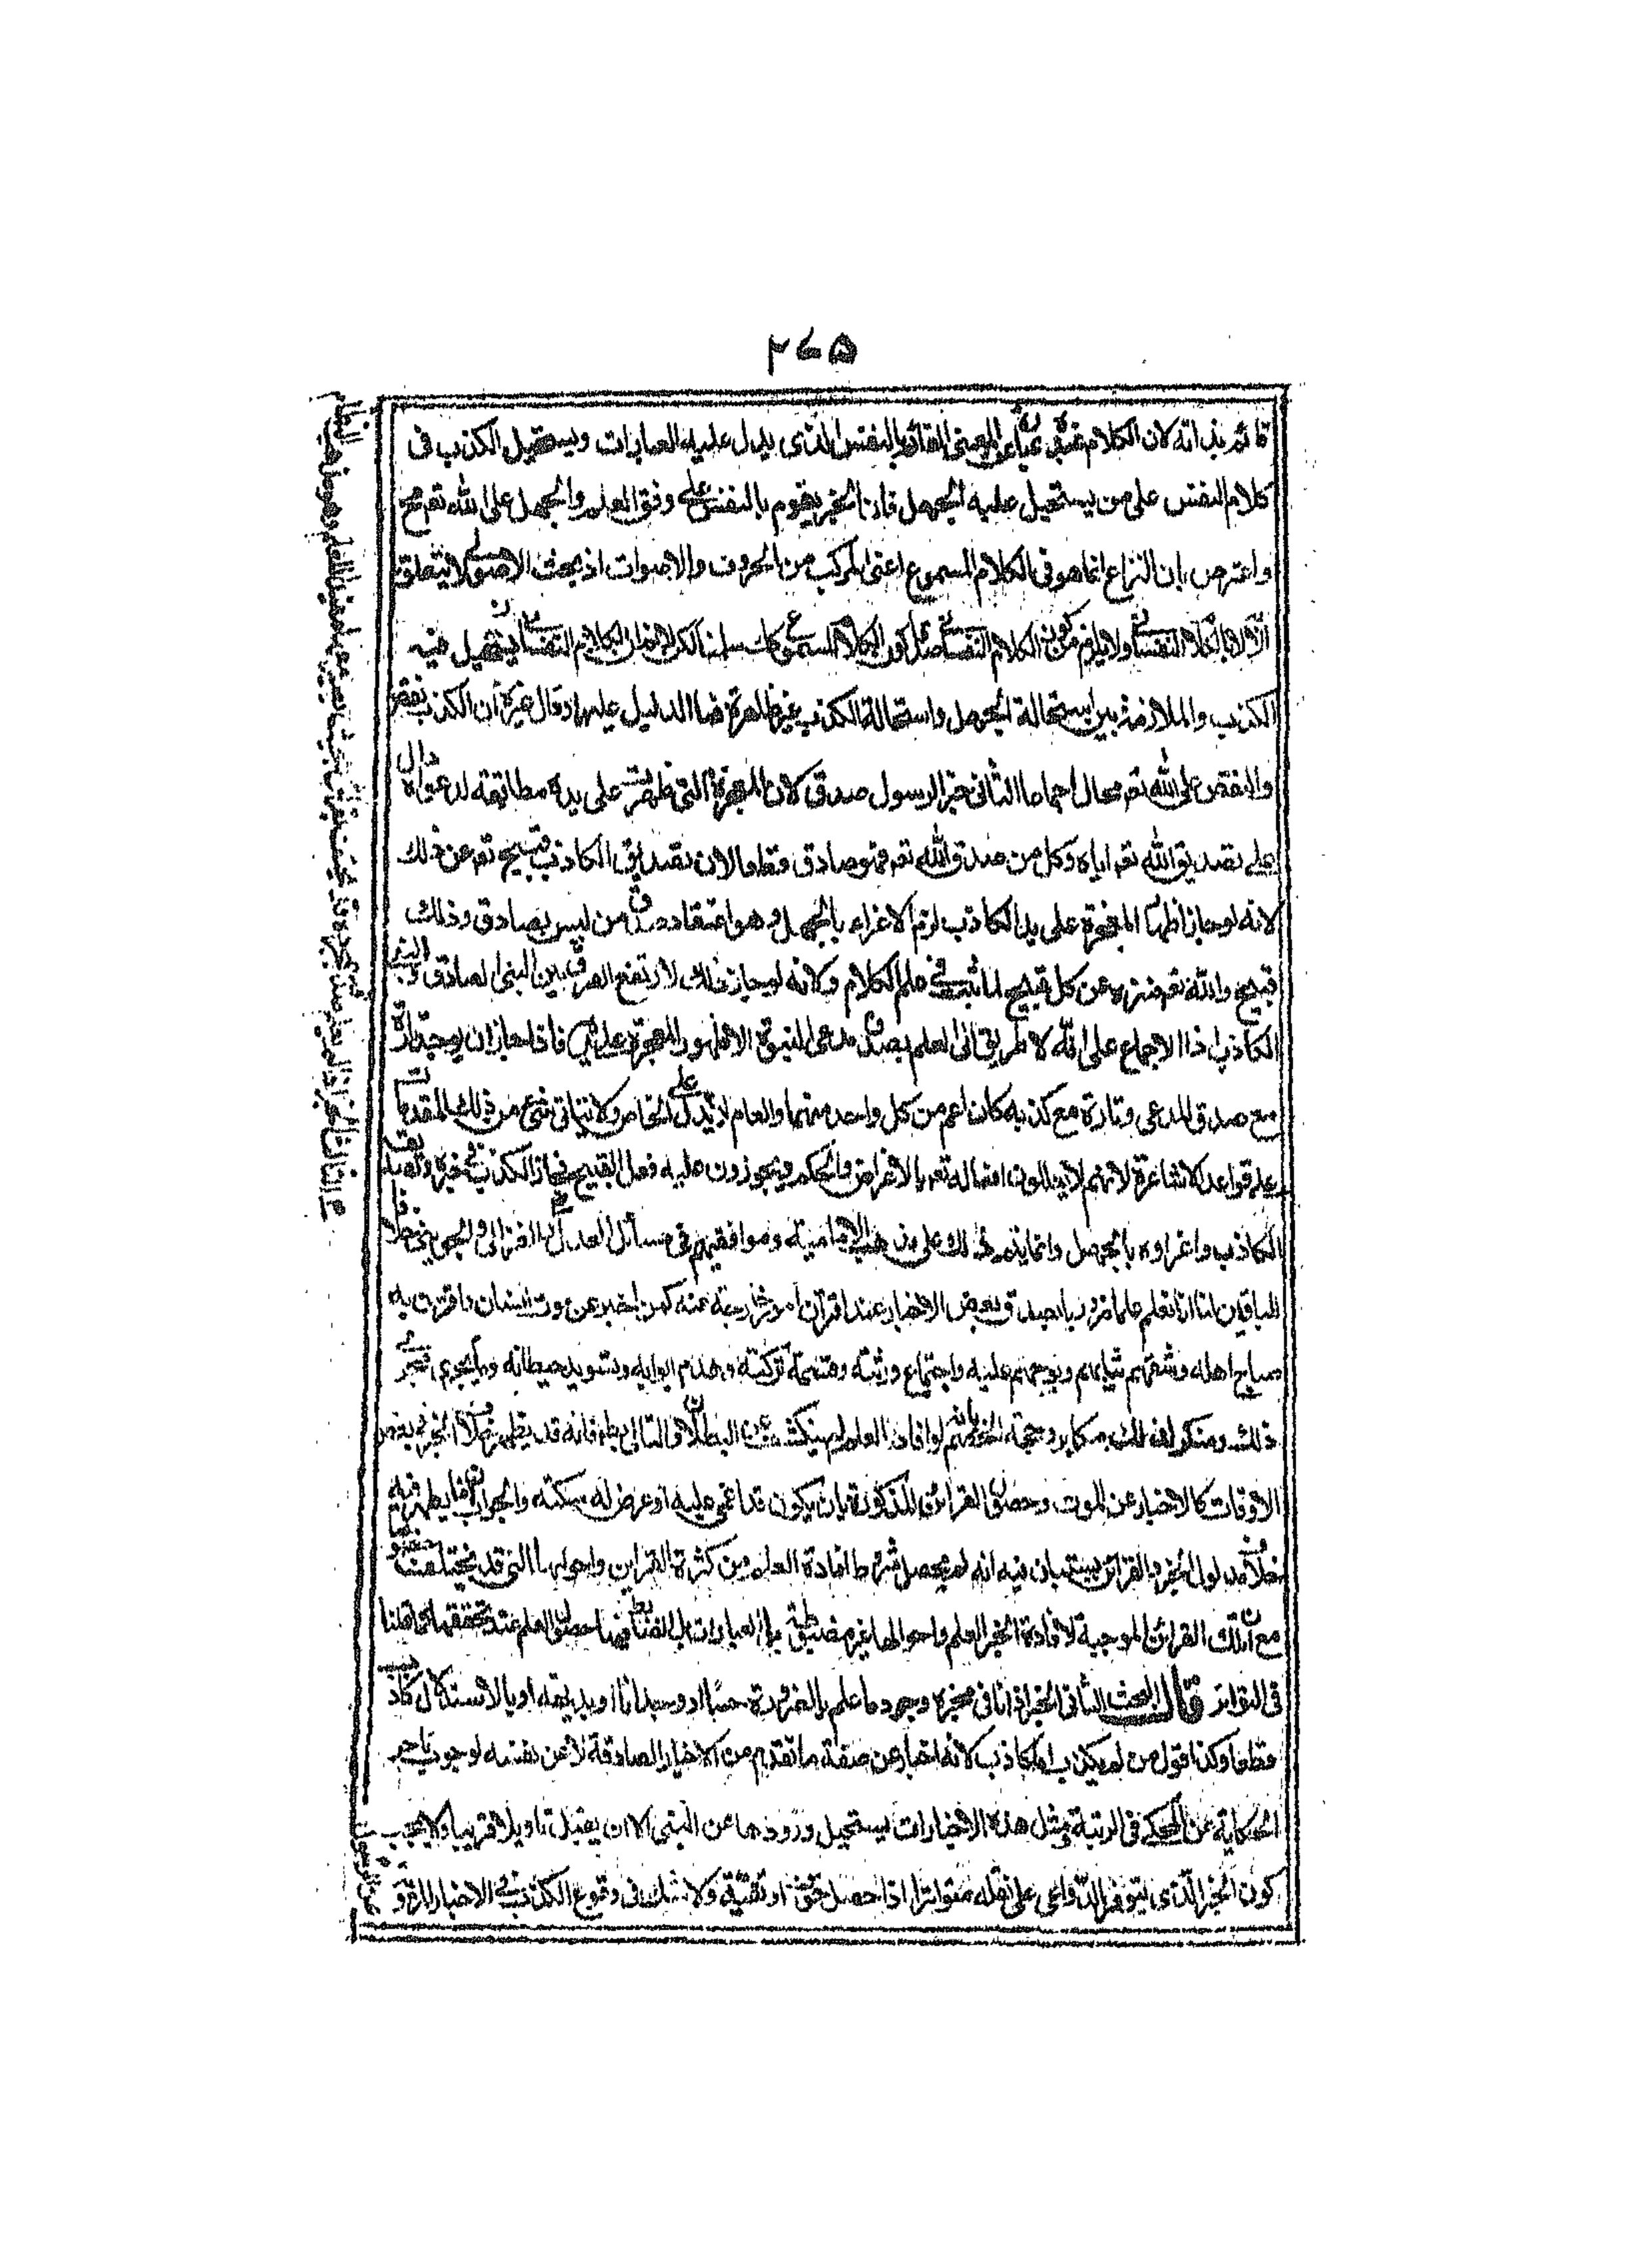 ٢٤٥
قائم بذاته لان الكلام عنده عبارة عن المعنى القائم بالنفس الذى يدل عليه العبارات ويستحيل الكذب فى
كلام النفس على من يستحيل عليه الجهل فاذن الخبر يقوم بالنفس على وفق العلم والجهل على الله تع مح
واعترض بان النزاع انما هو فى الكلام المسموع اعنى المركب من الحروف والاصوات اذ بحث الاصولى لا يتعلق
الا به لا بالكلام النفسانى ولا يلزم من كون الكلام النفسانى صدقا كون الكلام المسموع كك سلمنا لكن لا نم ان الكلام النفسانى يستحيل فيه
الكذب والملازمة بين استحالة الجهل واستحالة الكذب غير ظاهرة فما الدليل عليها وقال غيره ان الكذب نقص
والنقص على الله تع محال اجماعا الثانى خبر الرسول صدق لان المعجزة التى ظهرت على يده مطابقة لدعواه دال
على تصديق الله تع اياه وكل من صدق الله تع فهو صادق قطعا لان تصديق الكاذب قبيح تع عن ذلك
لانه لو جاز اظهار المعجزة على يد الكاذب لزم الاغراء بالجهل وهو اعتقاد صدق من ليس بصادق وذلك
قبيح والله تع منزه عن كل قبيح لما ثبت فى علم الكلام ولانه لو جاز ذلك لارتفع الفرق بين النبى الصادق وبين المتنبى
الكاذب اذ الاجماع على انه لا طريق الى العلم بصدق مدعى النبوة الا ظهور المعجزة على يده فاذا جاز ان يوجد تارة
مع صدق المدعى وتارة مع كذبه كان اعم من كل واحد منهما والعام لا يدل على الخاص ولا يتاتى شىء من ذلك المقدمات
على قواعد الاشاعرة لانهم لا يعللون افعاله تع بالاغراض والحكم ويجوزون عليه فعل القبيح فجاز الكذب فى خبره وتصديقه
الكاذب واغراؤه بالجهل وانما يتم ذلك على مذهب الامامية وموافقيهم فى مسائل العدل قال الغزالى والجوينى خلافا
للباقين لنا انا نعلم علما ضروريا بصدق بعض الاخبار عند اقتران امور خارجة عنه كمن اخبر عن موت انسان واقترن به
صياح اهله وشقهم ثيابهم وتوجعهم عليه واجتماع ورثته وقسمة تركته وهدم ابوابه وتسويد حيطانه وما يجرى مجرى
ذلك ومنكر ذلك مكابر وحجة الخصم بانه لو افاد العلم لم ينكشف عن البطلان والتالى بط فانه قد يظهر خلاف الخبر فى بعض
الاوقات كالاخبار عن الموت وحصول القرائن المذكورة بان يكون قد اغمى عليه او عرض له سكتة والجواب ان ما يظهر فيه
خلاف مدلول الخبر والقرائن يستبان فيه انه لم يحصل شرط افادة العلم من كثرة القرائن واحوالها التى قد يختلف
مع ان تلك القرائن الموجبة لافادة الخبر العلم واحوالها غير مضبوطة بالعبارات بل الضابط فيها حصول العلم عند تحققها كما قلنا
فى التواتر قال البحث الثانى الخبر اذا نافى مخبره وجود ما علم بالضرورة حسا او وجدانا او بديهة او بالاستدلال كاذب
قطعا وكذا قول من لم يكذب انا كاذب لانه اخبار عن صفة ما تقدم من الاخبار الصادقة لا عن نفسه لوجوب تاخير
الحكاية عن المحكى فى الرتبة ومثل هذه الاخبارات يستحيل ورودها عن النبى الا ان يقبل تاويلا قريبا ولا يجب
كون الخبر الذى يتوفر الدواعى على نقله متواترا اذا حصل خوف او تقية ولا شك فى وقوع الكذب فى الاخبار المروية